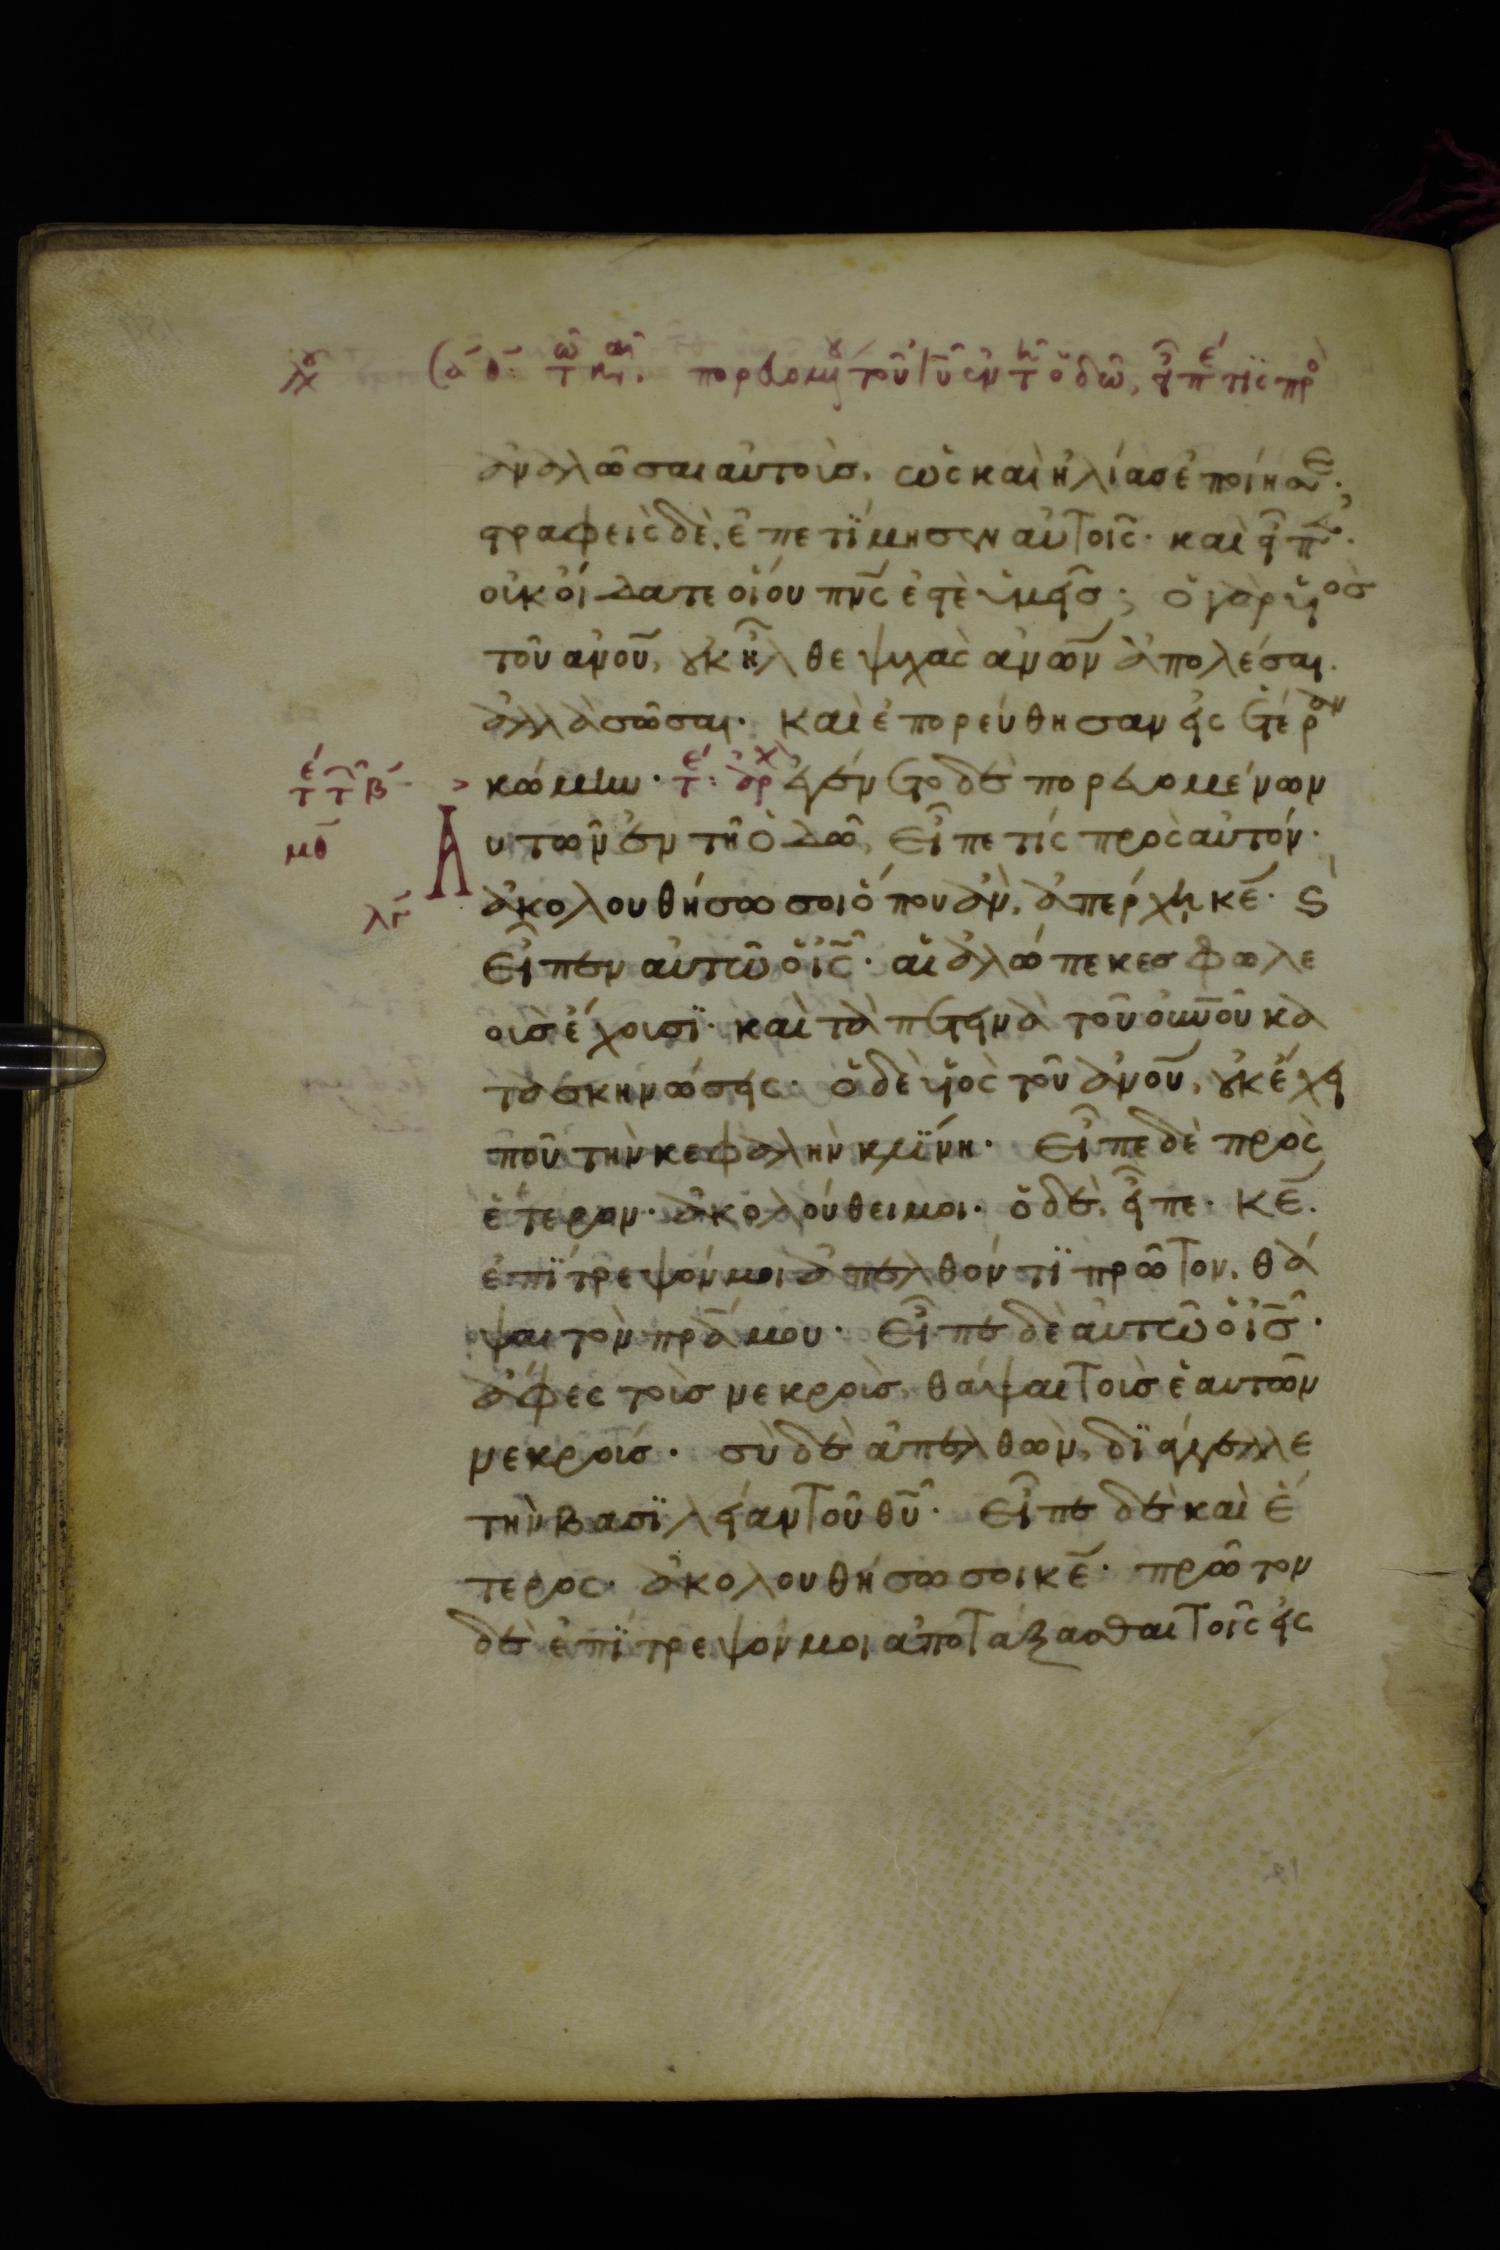 ἀναλῶσαι αὐτοὺς, ὡς καὶ ἠλίας ἐποίησε·
στραφεὶς δὲ, ἐπετίμησεν αὐτοῖς· καὶ εἶπεν·
οὐκ οἴδατε οἵου πνς ἐστὲ ὑμεῖς; ὁ γὰρ υἱὸς
τοῦ ανου, οὐκ ἦλθε ψυχὰς ανων ἀπολέσαι.
ἀλλὰ σῶσαι· καὶ ἐπορεύθησαν εἰς ἑτέραν
κώμην· ἐγένετο δὲ πορευομένων
Αυτῶν ἐν τῇ ὁδῶ, εἶπέ τις πρὸς αὐτόν·
ἀκολουθήσω σοι ὅπου ἂν, ἀπέρχη κε· ϗ
εἶπεν αὐτῶ ὁ ις· αἱ ἀλώπεκες φωλε
οὺς ἔχουσϊ· καὶ τὰ πετεινὰ τοῦ ουνοῦ κα
τασκηνώσεις· ὁ δὲ υἱὸς τοῦ ανου, οὐκ ἔχει
ποῦ τὴν κεφαλὴν κλίνη· εἶπε δὲ πρὸς
ἕτερον· ἀκολούθει μοι· ὁ δὲ, εἶπε· κε.
ἐπίτρεψόν μοι ἀπελθόντι πρῶτον, θά
ψαι τὸν πρα μου· εἶπε δὲ αὐτῶ ὁ ις·
ἄφες τοὺς νεκροὺς, θάψαι τοὺς ἑαυτῶν
νεκρούς· σὺ δὲ ἀπελθὼν, διάγγελλε
τὴν βασιλείαν τοῦ θυ· εἶπε δὲ καὶ ἕ
τερος· ἀκολουθήσω σοι κε· πρῶτον
δὲ ἐπίτρεψόν μοι ἀποτάξασθαι τοῖς εἰς